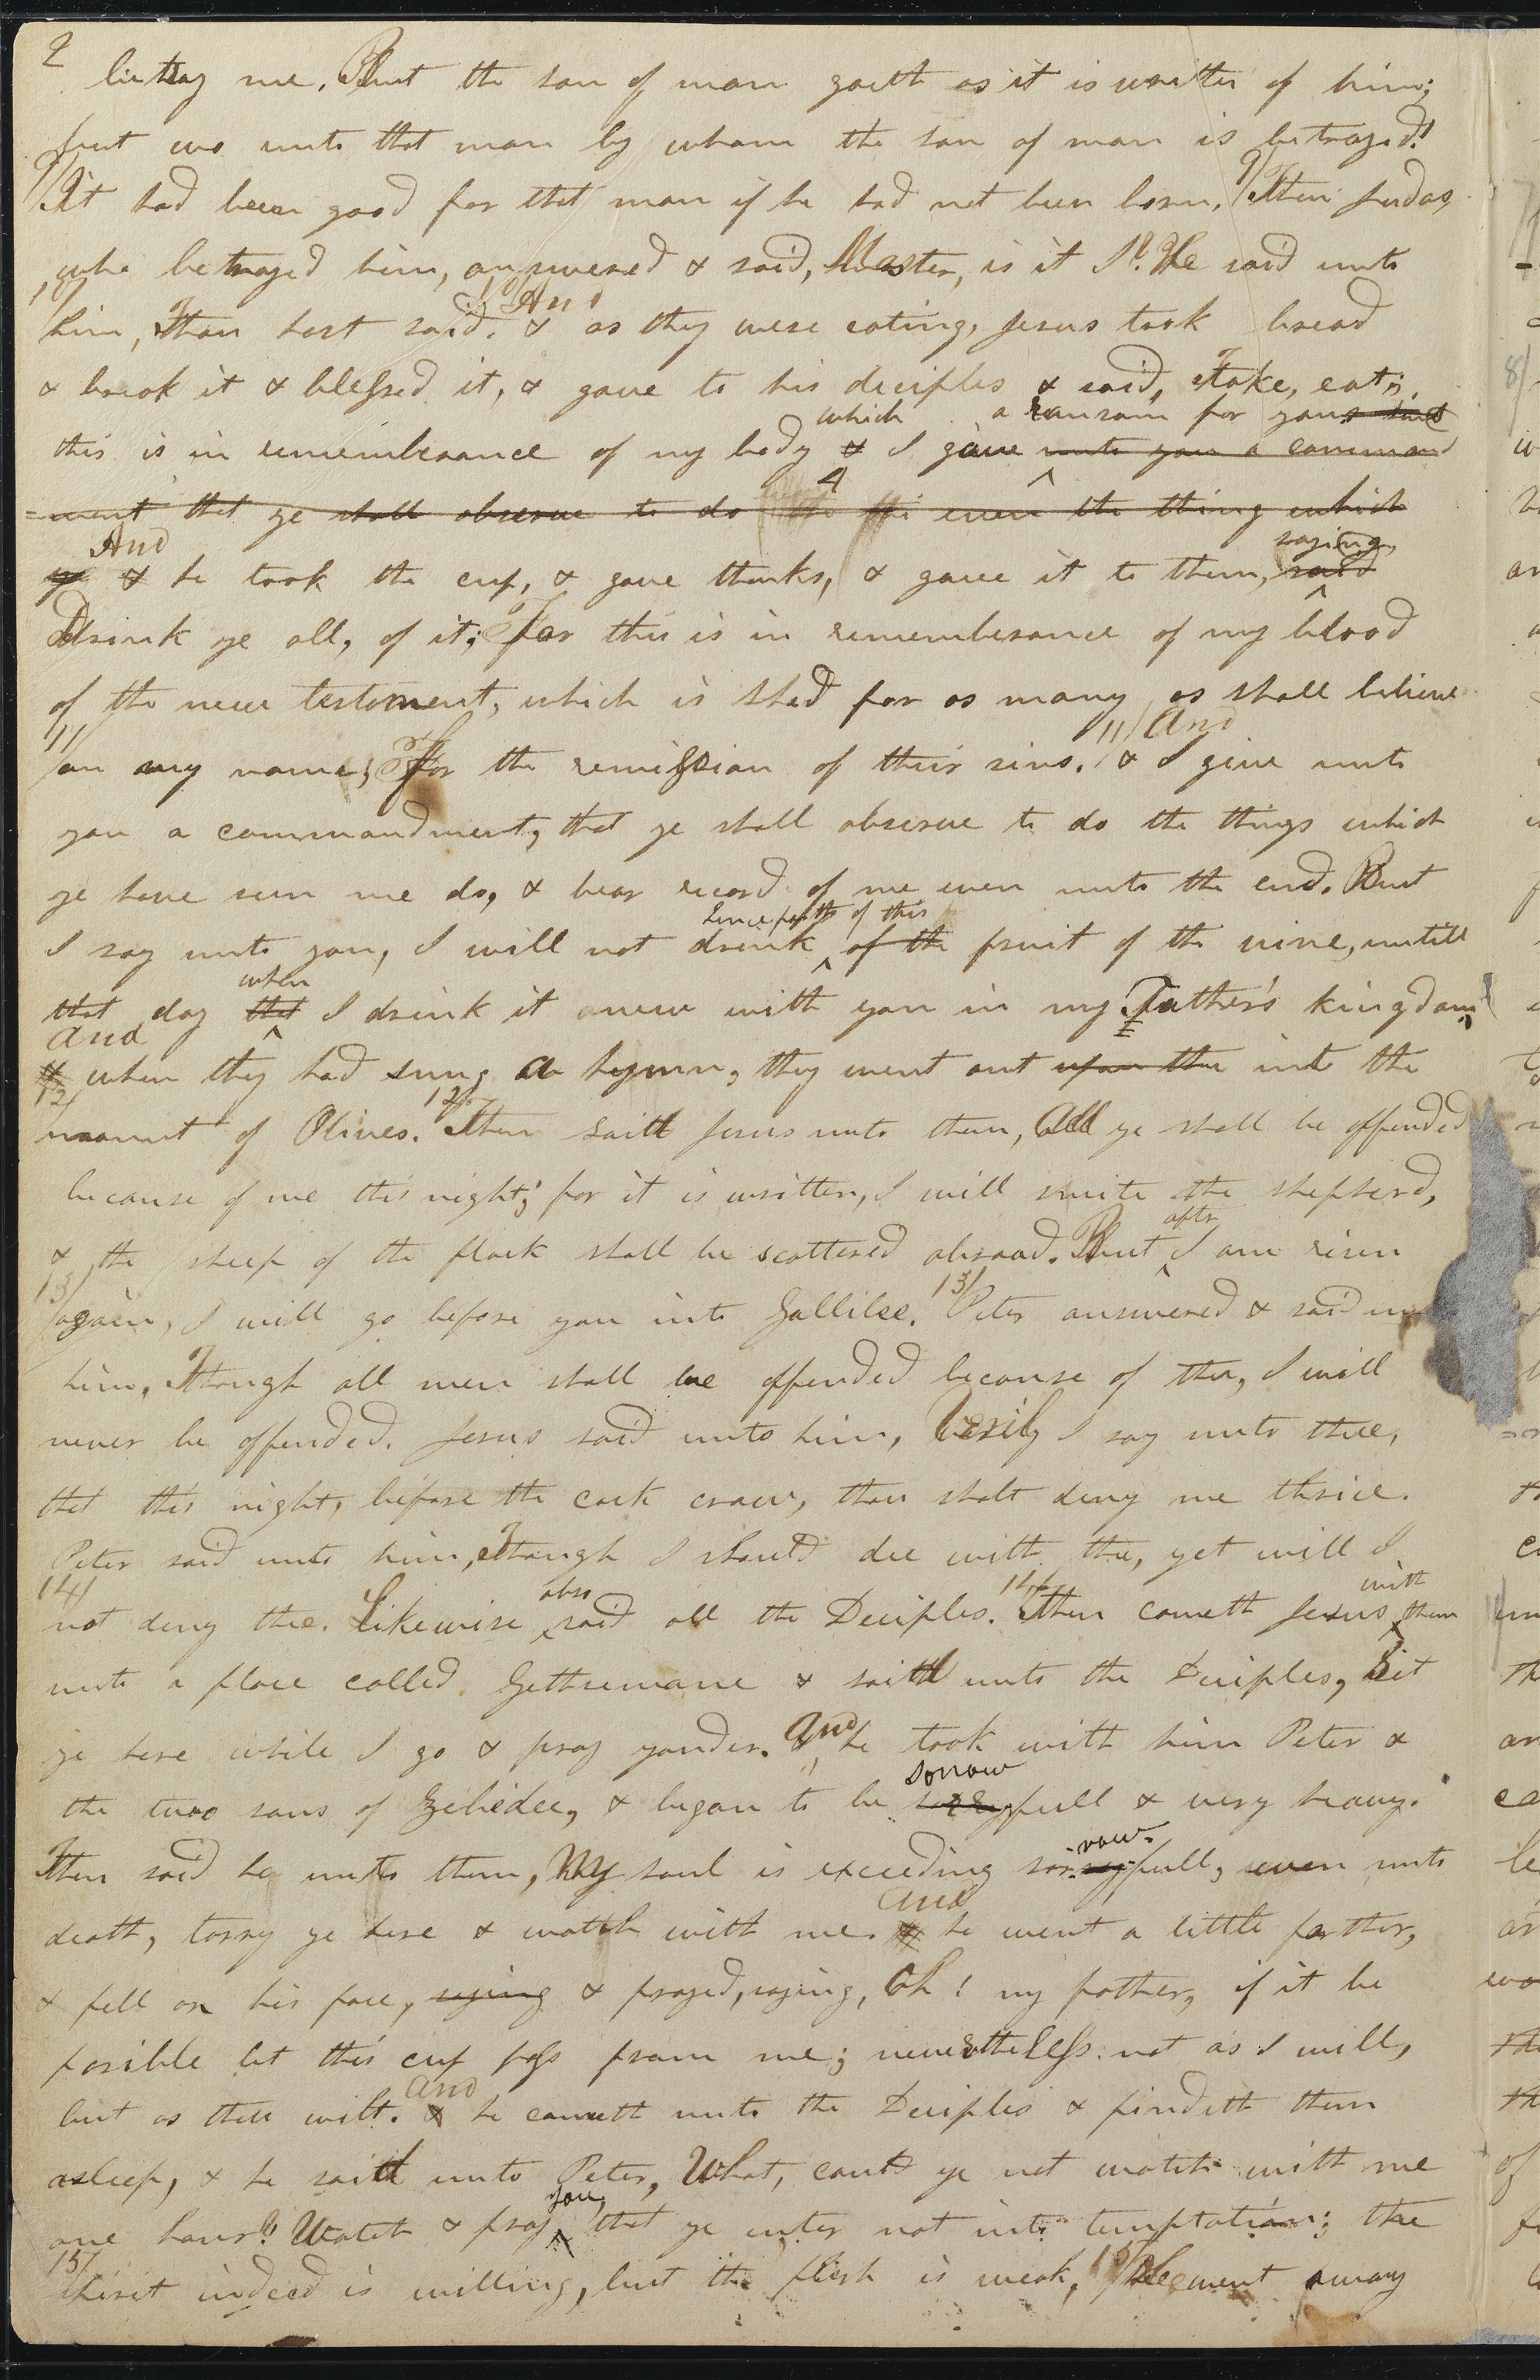 2
betray me. But the son of man goeth as it is writen of him;
but wo unto that man by whom the son of man is betrayed!
9/ It had been good for that man if he had not been born. 9/ Then Judas,
who betrayed him, answered & said, Master, is it I? He said unto
10/ And
him, Thou hast said. & as they were eating, Jesus took bread
& brook it & blessed it, & gave to his deciples & said, Take, eat;
which a ransom for you
this is in remembrance of my body & I gave unto you a command
=ment that ye shall observe to do the even the thing which
And saying,
ye & he took the cup, & gave thanks, & gave it to them, said
Drink ye all, of it; For this is in rememberance of my blood
of the new testament, which is shed for as many as shall believe
11/ 11/ And
on my name, for the remission of their sins. & I give unto
you a commandment, that ye shall observe to do the things which
ye have seen me do, & bear record of me even unto the end. But
henceforth of this
I say unto you, I will not drink of the fruit of the vine, untill
when
that day that I drink it anew with you in my Father's kingdom.
And
& when they had sung a hymn, they went out upon the into the
12/ 12/
mount of Olives. Then saith Jesus unto them, All ye shall be offended
because of me this night; for it is written, I will smite the shepherd,
after
& the sheep of the flock shall be scattered abroad. But I am risen
13/ 13/
again, I will go before you into Gallilee. Peter answered & said
him, Though all men shall be offended because of thee, I will
never be offended. Jesus said unto him, Verily I say unto thee,
that this night, before the cock crow, thou shalt deny me thrice.
Peter said unto him, Though I should die with thee, yet will I
14/ also 14/ with
not deny thee. Likewise said all the Deciples. Then cometh Jesus them
unto a place called Gethsemane & saith unto the Deciples, Sit
ye here while I go & pray yonder. And he took with him Peter &
sorrow
the two sons of Zebedee, & began to be sorryfull & very heavy.
row
Then said he unto them, My soul is exceeding sorryfull, even unto
And
death, tarry ye here & watch with me. & he went a little farther,
& fell on his face, saying & prayed, saying, Oh! my father, if it be
posible let this cup pass from me; nevertheless. not as I will,
And
but as thou wilt. & he cometh unto the Deciples & findeth them
asleep, & he saith unto Peter, What, could ye not watch with me
you,
one hour? Watch & pray that ye enter not into temptation; the
15/ 15/
spirit indeed is willing, but the flesh is weak, He went away